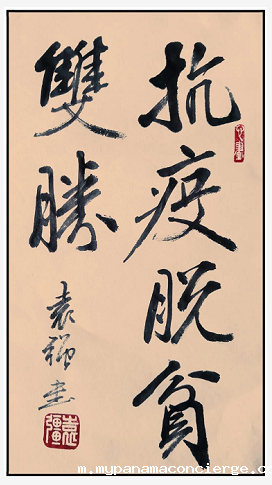 抗疫脱貧
雙勝
袁強書
袁彊
m.mypanamaconcierge.c